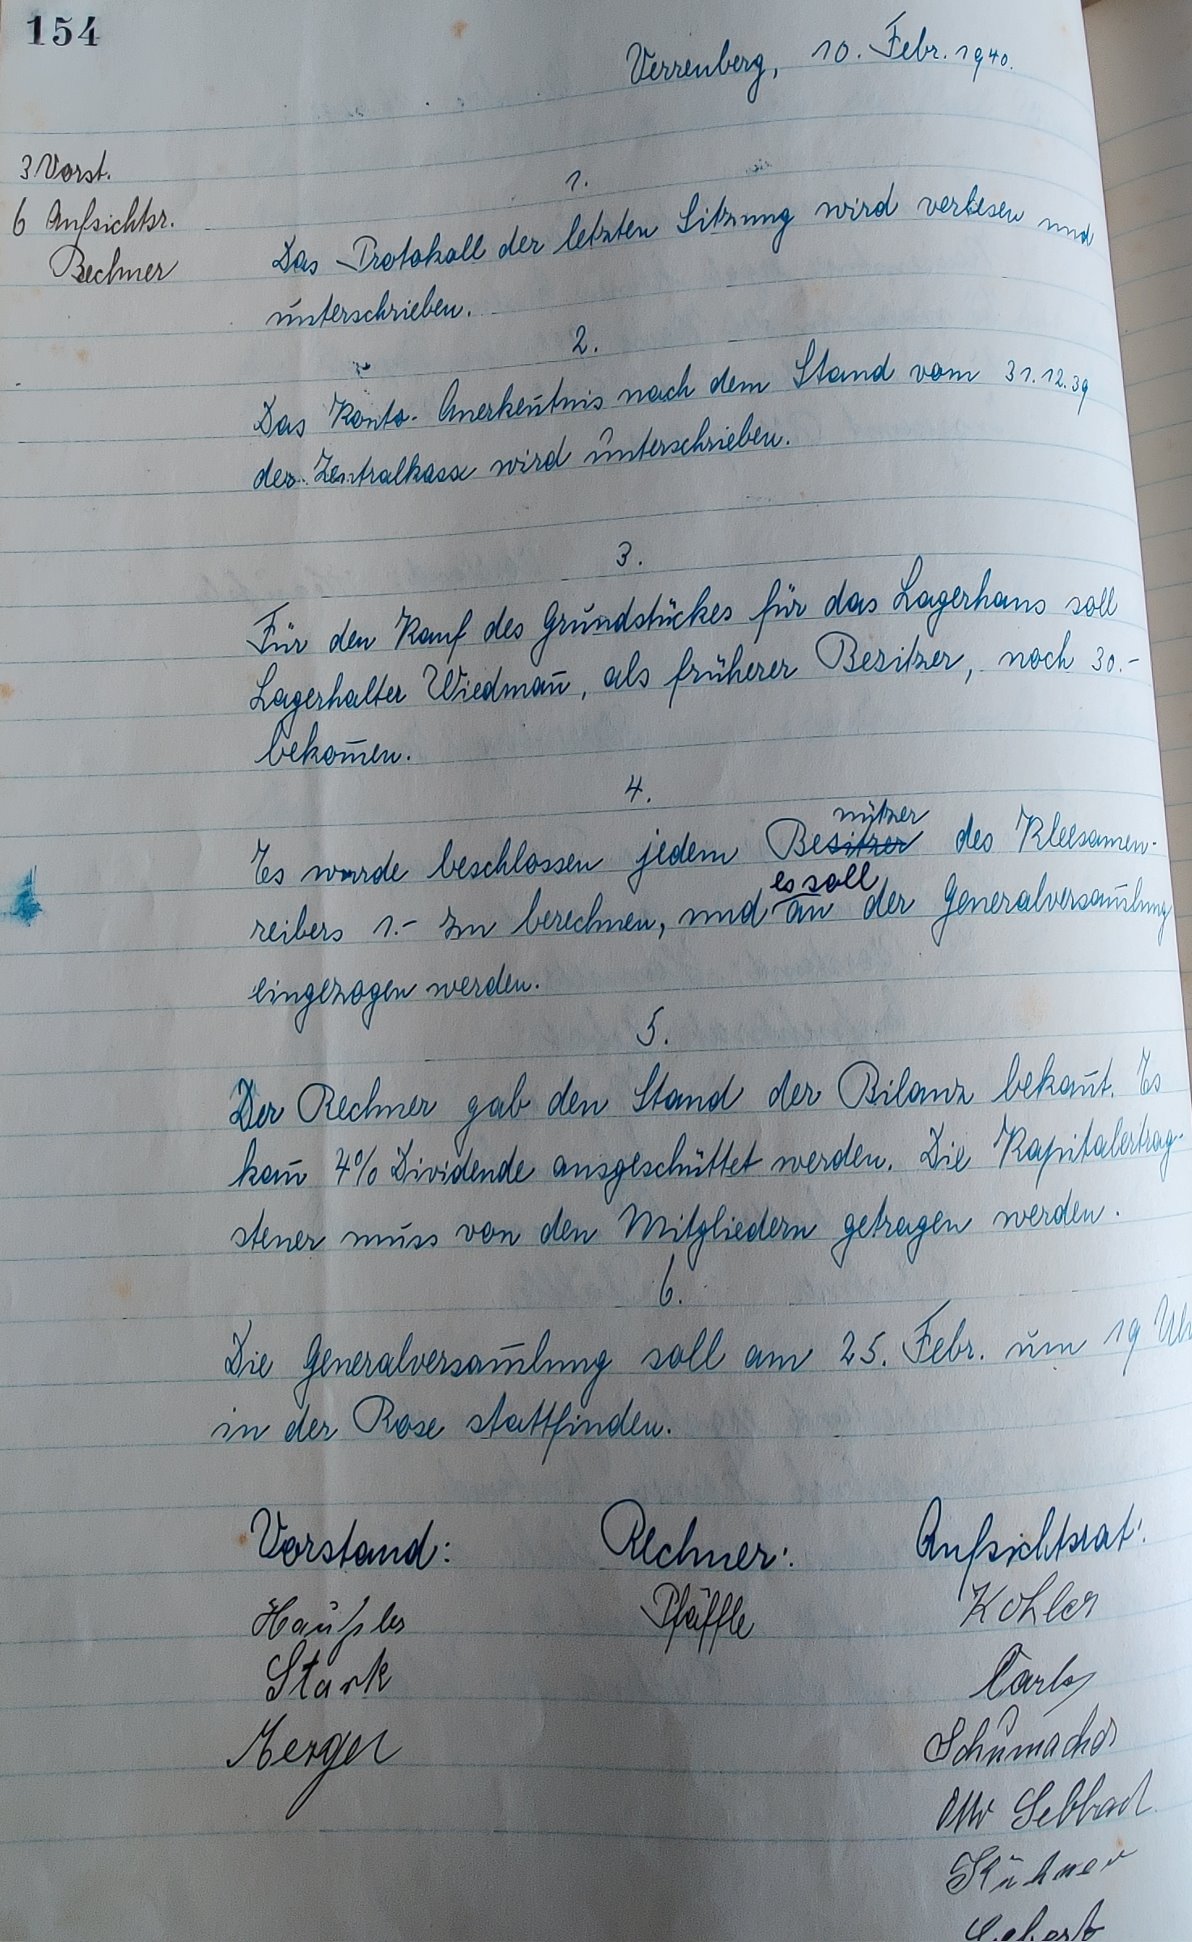 154
Verrenberg, 10. Febr. 1940.
3 Vorst.
6 Aufsichtsr.
Rechner
1.
Das Protokoll der letzten Sitzung wird verlesen und
unterschrieben.
2.
Das Konto-Anerkeñtnis nach dem Stand vom 31.12.39
der Zentralkasse wird unterschrieben.
3.
Für den Kauf des Grundstückes für das Lagerhaus soll
Lagerhalter Wiedmañ, als früherer Besitzer, noch 30.-
bekom̄en.
4.
nützer
Es wurde beschlossen jedem Besitzer des Kleesamen-
es soll
reibers 1.- zu berechnen, und an der Generalversam̄lung
eingezogen werden.
5.
Der Rechner gab den Stand der Bilanz bekañt. Es
kañ 4% Dividende ausgeschüttet werden. Die Kapitalertrag-
steuer muss von den Mitgliedern getragen werden.
6.
Die Generalversam̄lung soll am 25. Febr. um 19 Uh
in der Rose stattfinden.
Vorstand: Rechner: Aufsichtsrat:
Häußler Pfäffle Kohler
Stark
Schumacher
Otto